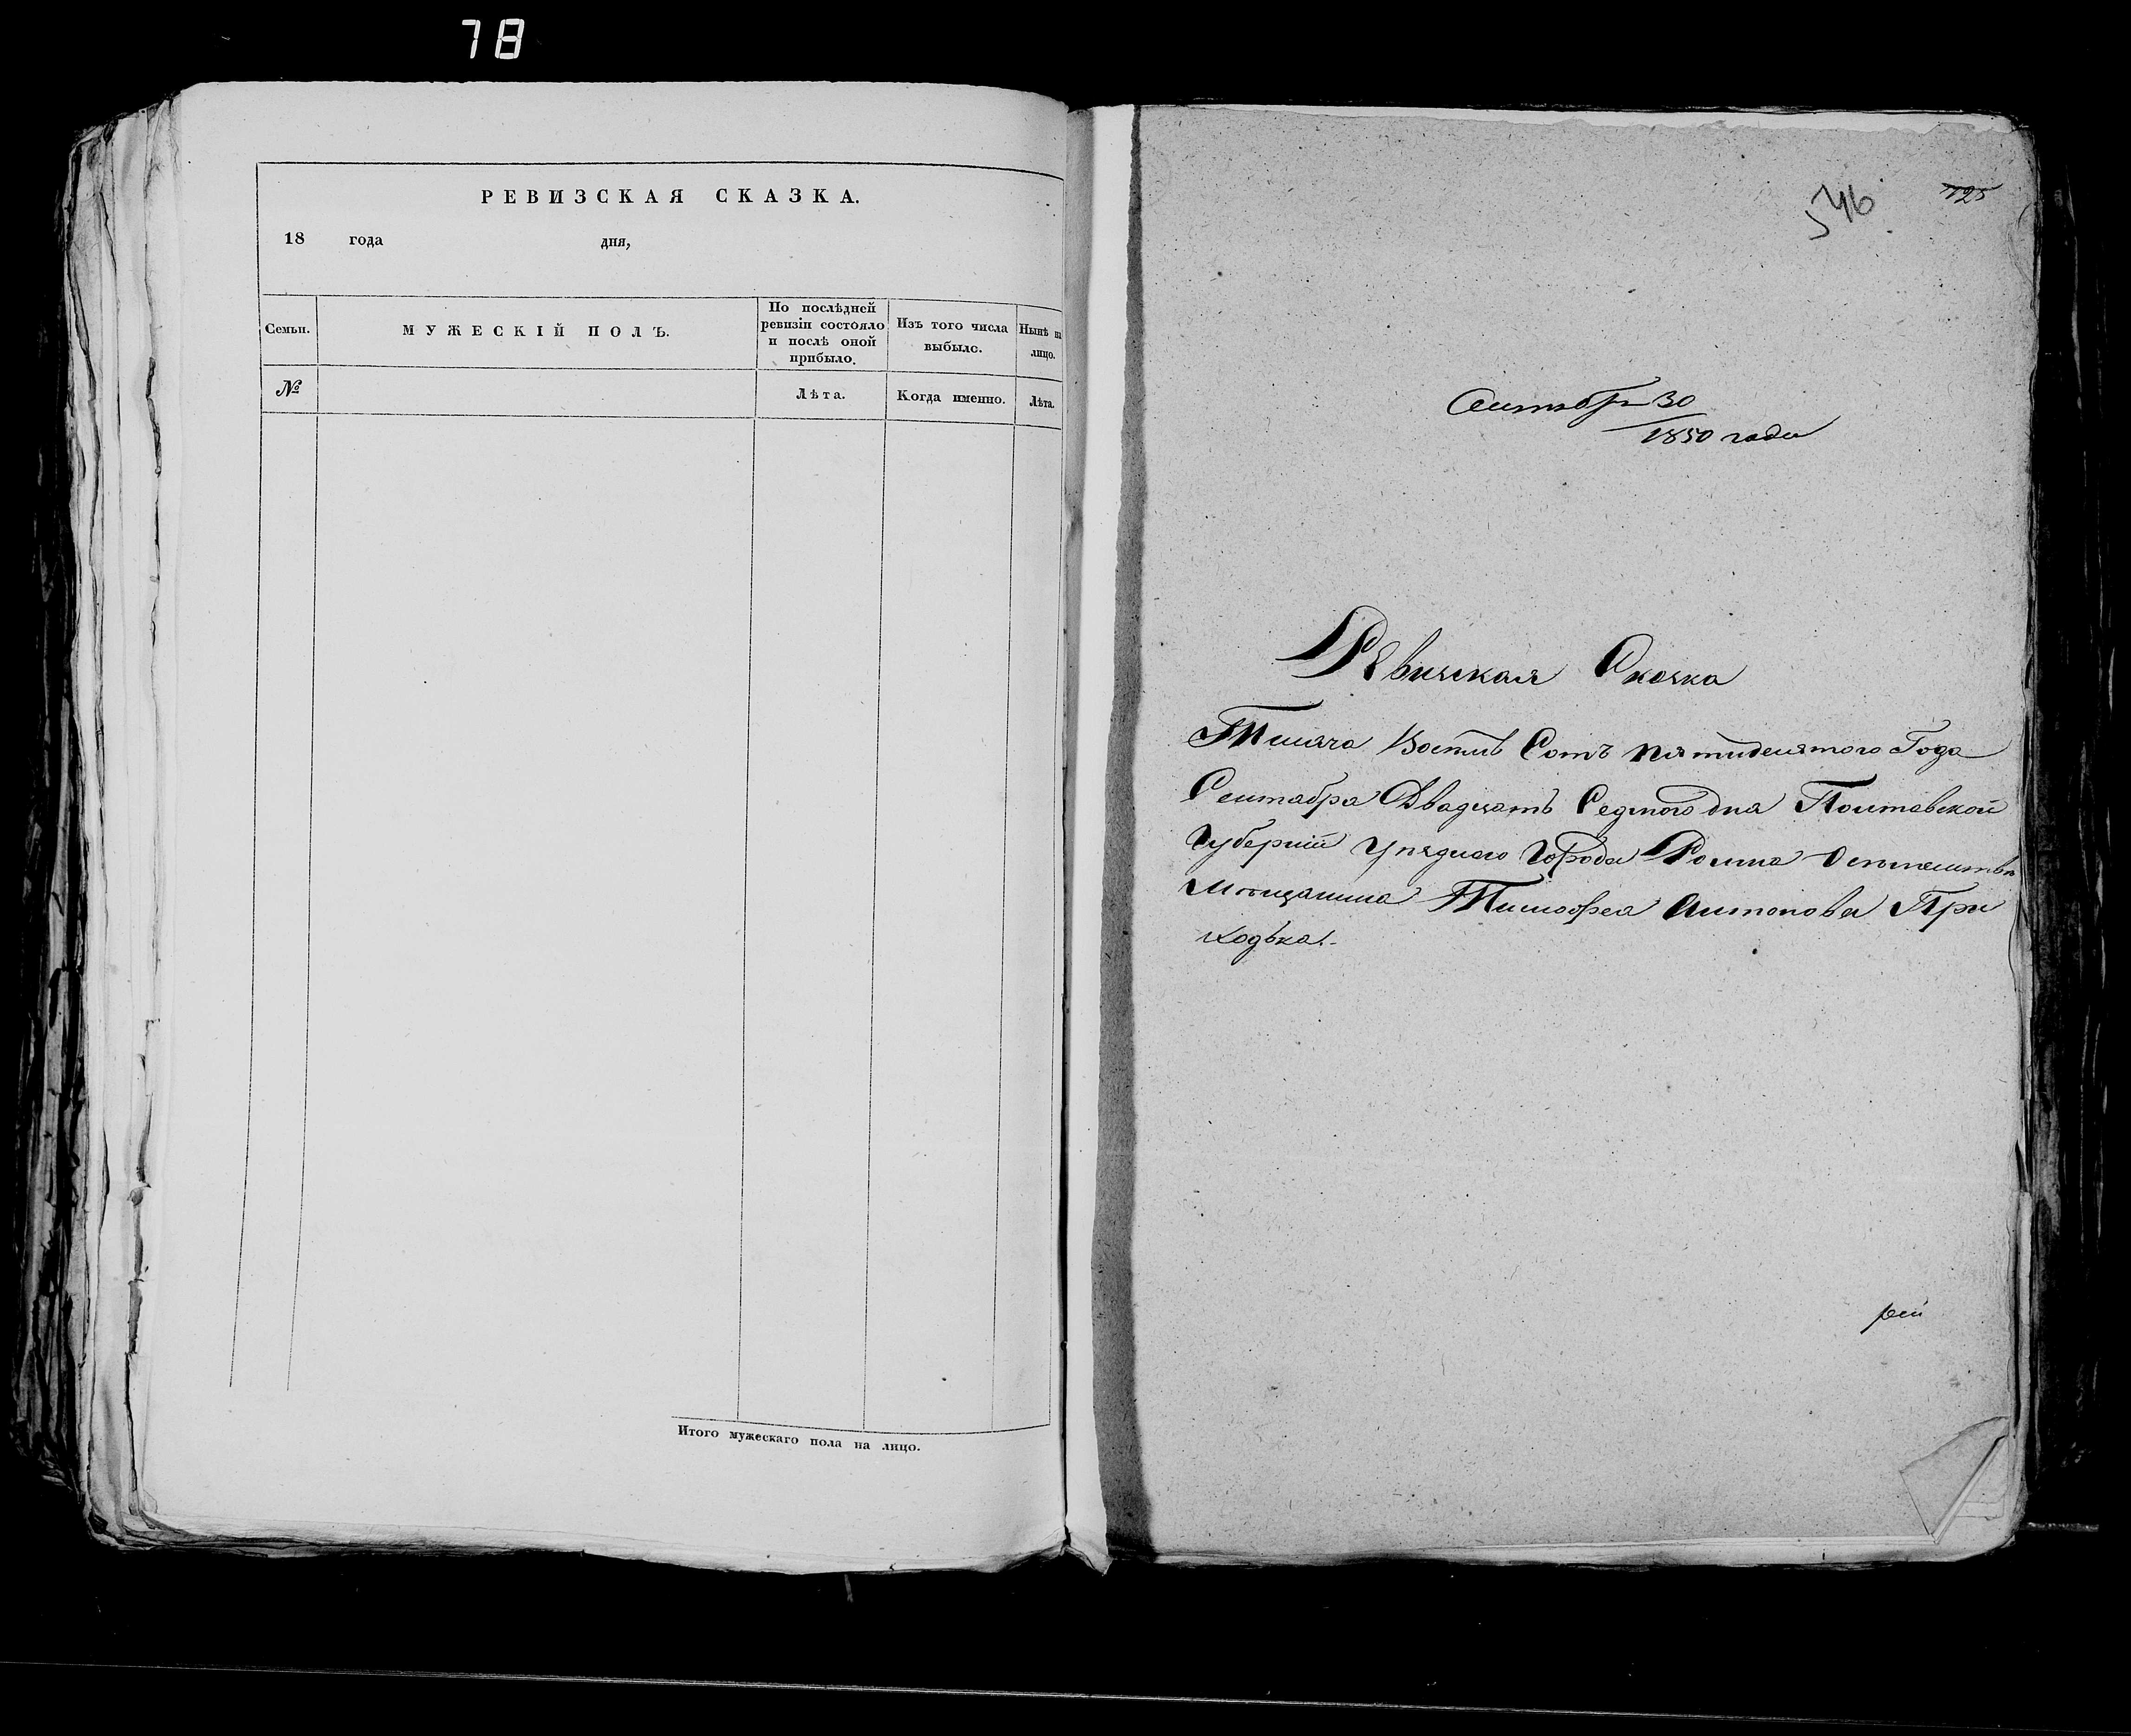 78
РЕВИЗСКАЯ СКАЗКА.
18 года дня,
Семьи.
МУЖЕСКІЙ ПОЛЪ.
По послѣдней ревизіи состояло и послѣ оной прибыло.
Изъ того числа выбыло.
Нынѣ на лицо.
№
Лѣта.
Когда именно.
Лѣта.
Итого мужескаго пола на лицо.
346
125
Сентября 30
1850 года
Ревизская Сказка
Тисяча Восемь Сотъ пятидесятого Года
Сентабра Двадцать Седмого дня Полтавской
Губерніи Уезднаго Города Ромна
Мѣщанина Тимофеа Антонова При
ходька.